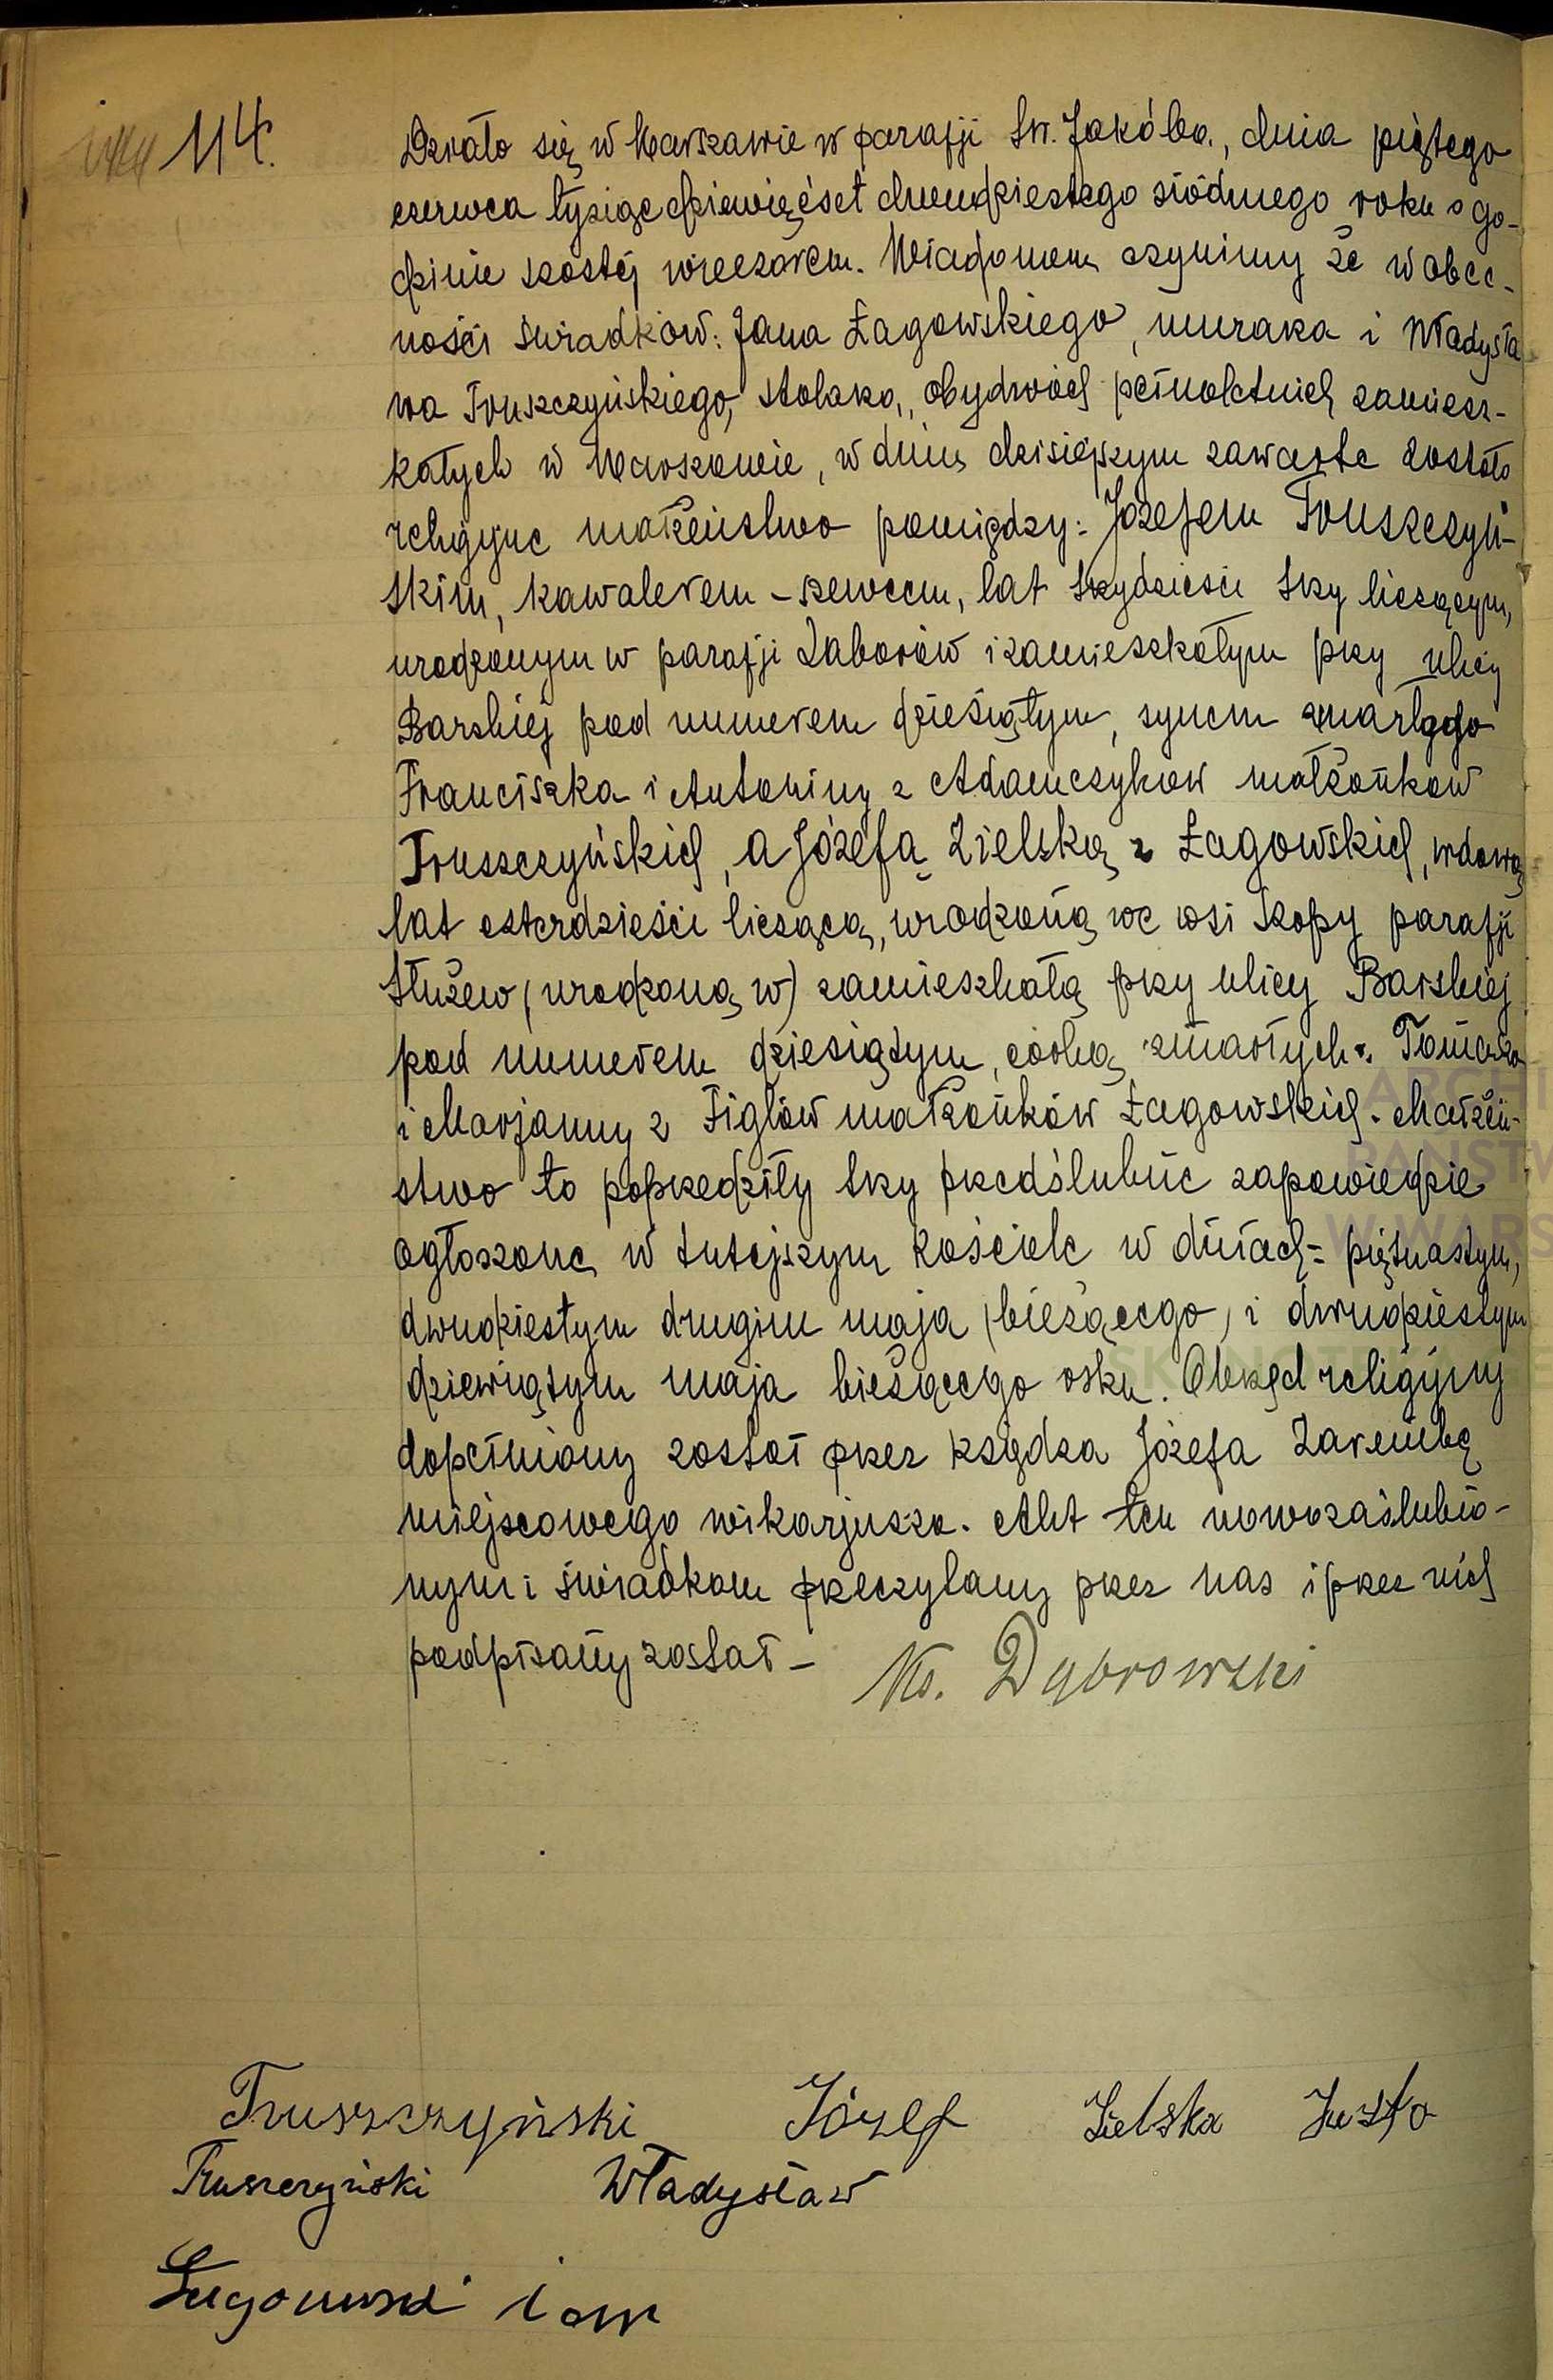 114.
Działo się w Warszawie w parafji Św. Jakóba, dnia piątego
czerwca tysiąc dziewięćset dwudziestego siódmego roku o go-
dzinie szóstej wieczorem. Wiadomem czynimy że w obec-
ności świadków: Jana Łagowskiego, murarza i Władysła
wa Truszczyńskiego, stolarza, obydwóch pełnoletnich zamiesz-
kałych w Warszawie, w dniu dzisiejszym zawarte zostało
religijne małżeństwo pomiędzy: Józefem Truszczyń-
skim, kawalerem - szewcem, lat trzydzieści trzy liczącym,
urodzonym w parafji Zaborów i zamieszkałym przy ulicy
Barskiej pod numerem dziesiątym, synem zmarłego
Franciszka i Antoniny z Adamczyków małżonków
Truszczyńskich, a Józefą Zielską z Łagowskich, wdową
lat czterdzieści liczącą, urodzoną we wsi Szopy parafji
Służew (urodzoną w) zamieszkałą przy ulicy Barskiej
pod numerem dziesiątym, córką zmarłych Tomasza
i Marjanny z Figlów małżonków Łagowskich. Małżeń-
stwo to poprzedziły trzy przedślubne zapowiedzie
ogłoszone w tutejszym kościele w dniach = piętnastym,
dwudziestym drugim maja (bieżącego) i dwudziestym
dziewiątym maja bieżącego roku. Obrzęd religijny
dopełniony został przez księdza Józefa Zarembę
miejscowego wikarjusza. Akt ten nowozaślubio-
nym i świadkom przeczytany przez nas i przez nich
podpisany został - Ks. Dąbrowski
Truszczyński Józef Zielska Juzfa
Truszczyński Władysław
Łagowski Jan
ARCHI
PAŃSTW
W WARS